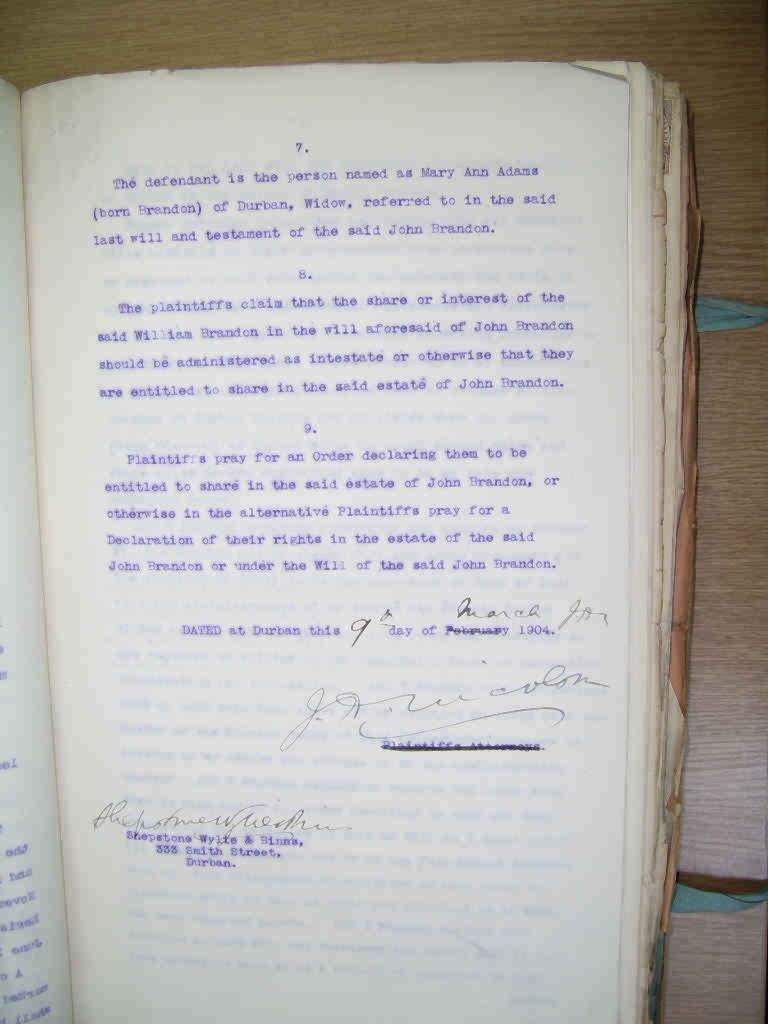 7.
The defendant is the person named as Mary Ann Adams
(born Brandon) of Durban, Widow, referred to in the said
last will and testament of the said John Brandon.
8.
The plaintiffs claim that the share or interest of the
said William Brandon in the will aforesaid of John Brandon
should be administered as intestate or otherwise that they
are entitled to share in the said estate of John Brandon.
9.
Plaintiffs pray for an Order declaring them to be
entitled to share in the said estate of John Brandon, or
otherwise in the alternative Plaintiffs pray for a
Declaration of their rights in the estate of the said
John Brandon or under the Will of the said John Brandon.
March
DATED at Durban this 9th day of February 1904.
Plaintiffs Attorneys.
Shepstone Wylie & Binns,
333 Smith Street,
Durban.